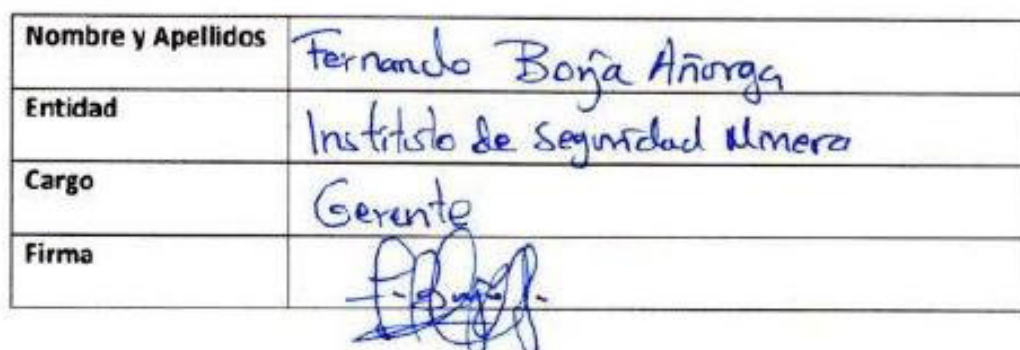 Nombre y Apellidos Fernando Borja Añorga
Entidad Instituto de Seguridad Minera
Cargo Gerente
Firma